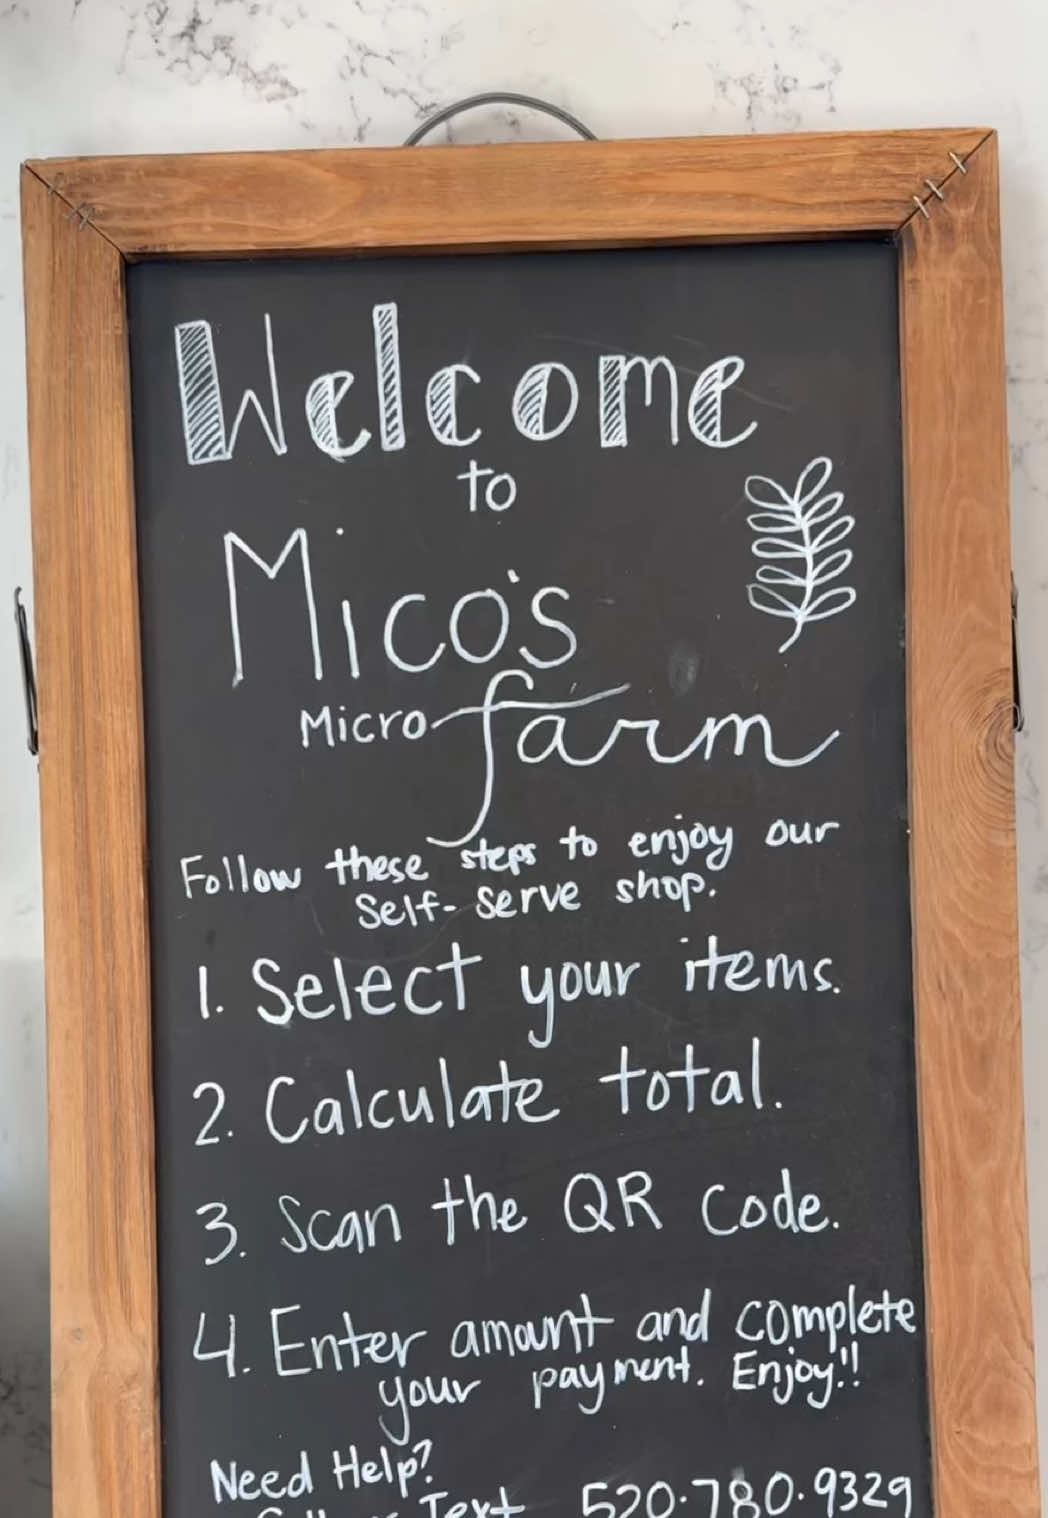 Welcome
to
Mico's
Micro farm
Follow these steps to enjoy our
Self-Serve shop.
1. Select your items.
2. Calculate total.
3. Scan the QR code.
4. Enter amount and complete
your payment. Enjoy!!
Need Help?
Text 520.780.9329